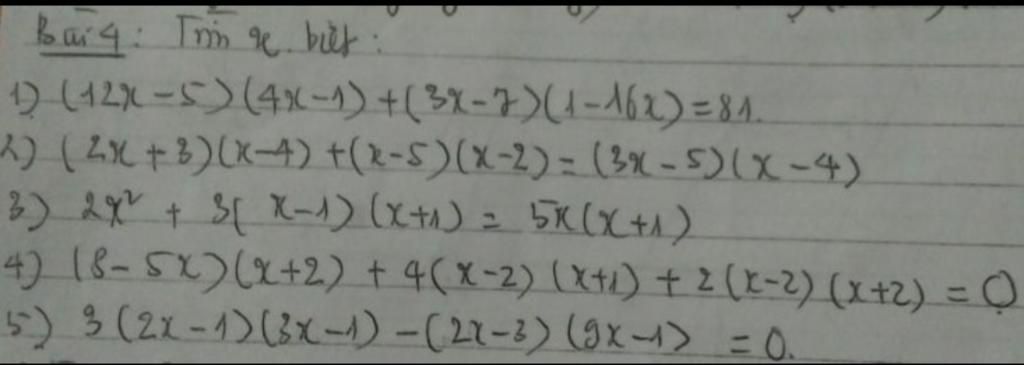 Bài 4: Tìm x biết:
1) (12x-5)(4x-1)+(3x-7)(1-16x)=81.
2) (2x+3)(x-4)+(x-5)(x-2)=(3x-5)(x-4)
3) 2x² + 3(x-1)(x+1) = 5x(x+1)
4) (8-5x)(x+2) + 4(x-2)(x+1) + 2(x-2)(x+2) = 0
5) 3(2x-1)(3x-1)-(2x-3)(9x-1) = 0.